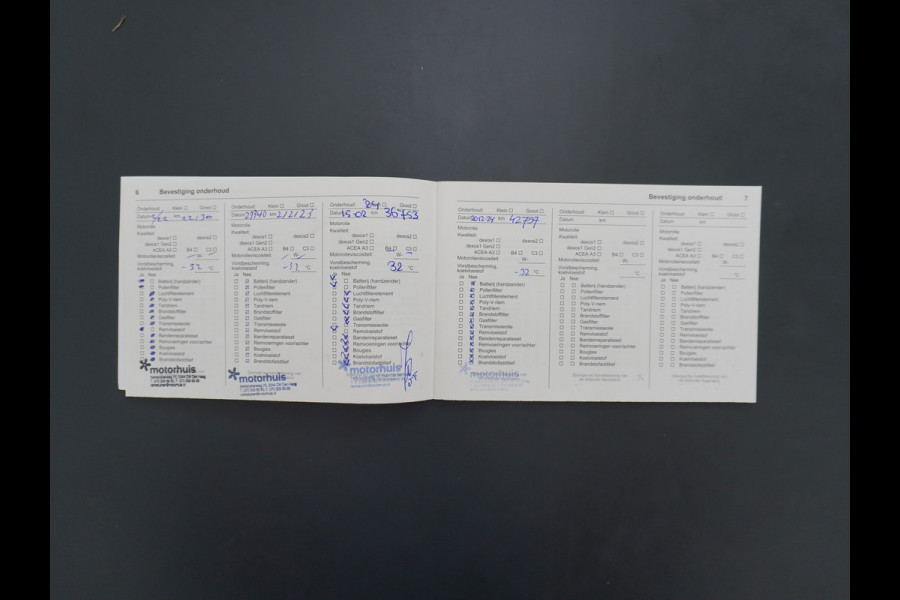 6 Bevestiging onderhoud
Onderhoud: Klein Groot
Datum km
Motorolie
Kwaliteit:
dexos1 dexos2
dexos1 Gen2
ACEA A3 B4 C3
Motorolieviscositeit W-
Vorstbescherming,
koelvloeistof -32 °C
Ja Nee
Batterij (handzender)
Pollenfilter
Luchtfilterelement
Poly-V-riem
Tandriem
Brandstoffilter
Gasfilter
Transmissieolie
Remvloeistof
Bandenreparatieset
Remvoeringen voor/achter
Bougies
Koelvloeistof
Brandstofadditief
motorhuis
Onderhoud: Klein Groot
Datum 29740 km 2/2/23
Motorolie
Kwaliteit:
dexos1 dexos2
dexos1 Gen2
ACEA A3 B4 C3
Motorolieviscositeit W-
Vorstbescherming,
koelvloeistof °C
Ja Nee
Batterij (handzender)
Pollenfilter
Luchtfilterelement
Poly-V-riem
Tandriem
Brandstoffilter
Gasfilter
Transmissieolie
Remvloeistof
Bandenreparatieset
Remvoeringen voor/achter
Bougies
Koelvloeistof
Brandstofadditief
motorhuis
Onderhoud: Klein Groot
24
Datum 15-02 km 36753
Motorolie
Kwaliteit:
dexos1 dexos2
dexos1 Gen2
ACEA A3 B4 C3
Motorolieviscositeit W-
Vorstbescherming,
koelvloeistof 32 °C
Ja Nee
Batterij (handzender)
Pollenfilter
Luchtfilterelement
Poly-V-riem
Tandriem
Brandstoffilter
Gasfilter
Transmissieolie
Remvloeistof
Bandenreparatieset
Remvoeringen voor/achter
Bougies
Koelvloeistof
Brandstofadditief
motorhuis
Bevestiging onderhoud 7
Onderhoud: Klein Groot
Datum 20-12-24 km 42757
Motorolie
Kwaliteit:
dexos1 dexos2
dexos1 Gen2
ACEA A3 B4 C3
Motorolieviscositeit W-
Vorstbescherming,
koelvloeistof -32 °C
Ja Nee
Batterij (handzender)
Pollenfilter
Luchtfilterelement
Poly-V-riem
Tandriem
Brandstoffilter
Gasfilter
Transmissieolie
Remvloeistof
Bandenreparatieset
Remvoeringen voor/achter
Bougies
Koelvloeistof
Brandstofadditief
motorhuis
Onderhoud: Klein Groot
Datum km
Motorolie
Kwaliteit:
dexos1 dexos2
dexos1 Gen2
ACEA A3 B4 C3
Motorolieviscositeit W-
Vorstbescherming,
koelvloeistof °C
Ja Nee
Batterij (handzender)
Pollenfilter
Luchtfilterelement
Poly-V-riem
Tandriem
Brandstoffilter
Gasfilter
Transmissieolie
Remvloeistof
Bandenreparatieset
Remvoeringen voor/achter
Bougies
Koelvloeistof
Brandstofadditief
Onderhoud: Klein Groot
Datum km
Motorolie
Kwaliteit:
dexos1 dexos2
dexos1 Gen2
ACEA A3 B4 C3
Motorolieviscositeit W-
Vorstbescherming,
koelvloeistof °C
Ja Nee
Batterij (handzender)
Pollenfilter
Luchtfilterelement
Poly-V-riem
Tandriem
Brandstoffilter
Gasfilter
Transmissieolie
Remvloeistof
Bandenreparatieset
Remvoeringen voor/achter
Bougies
Koelvloeistof
Brandstofadditief